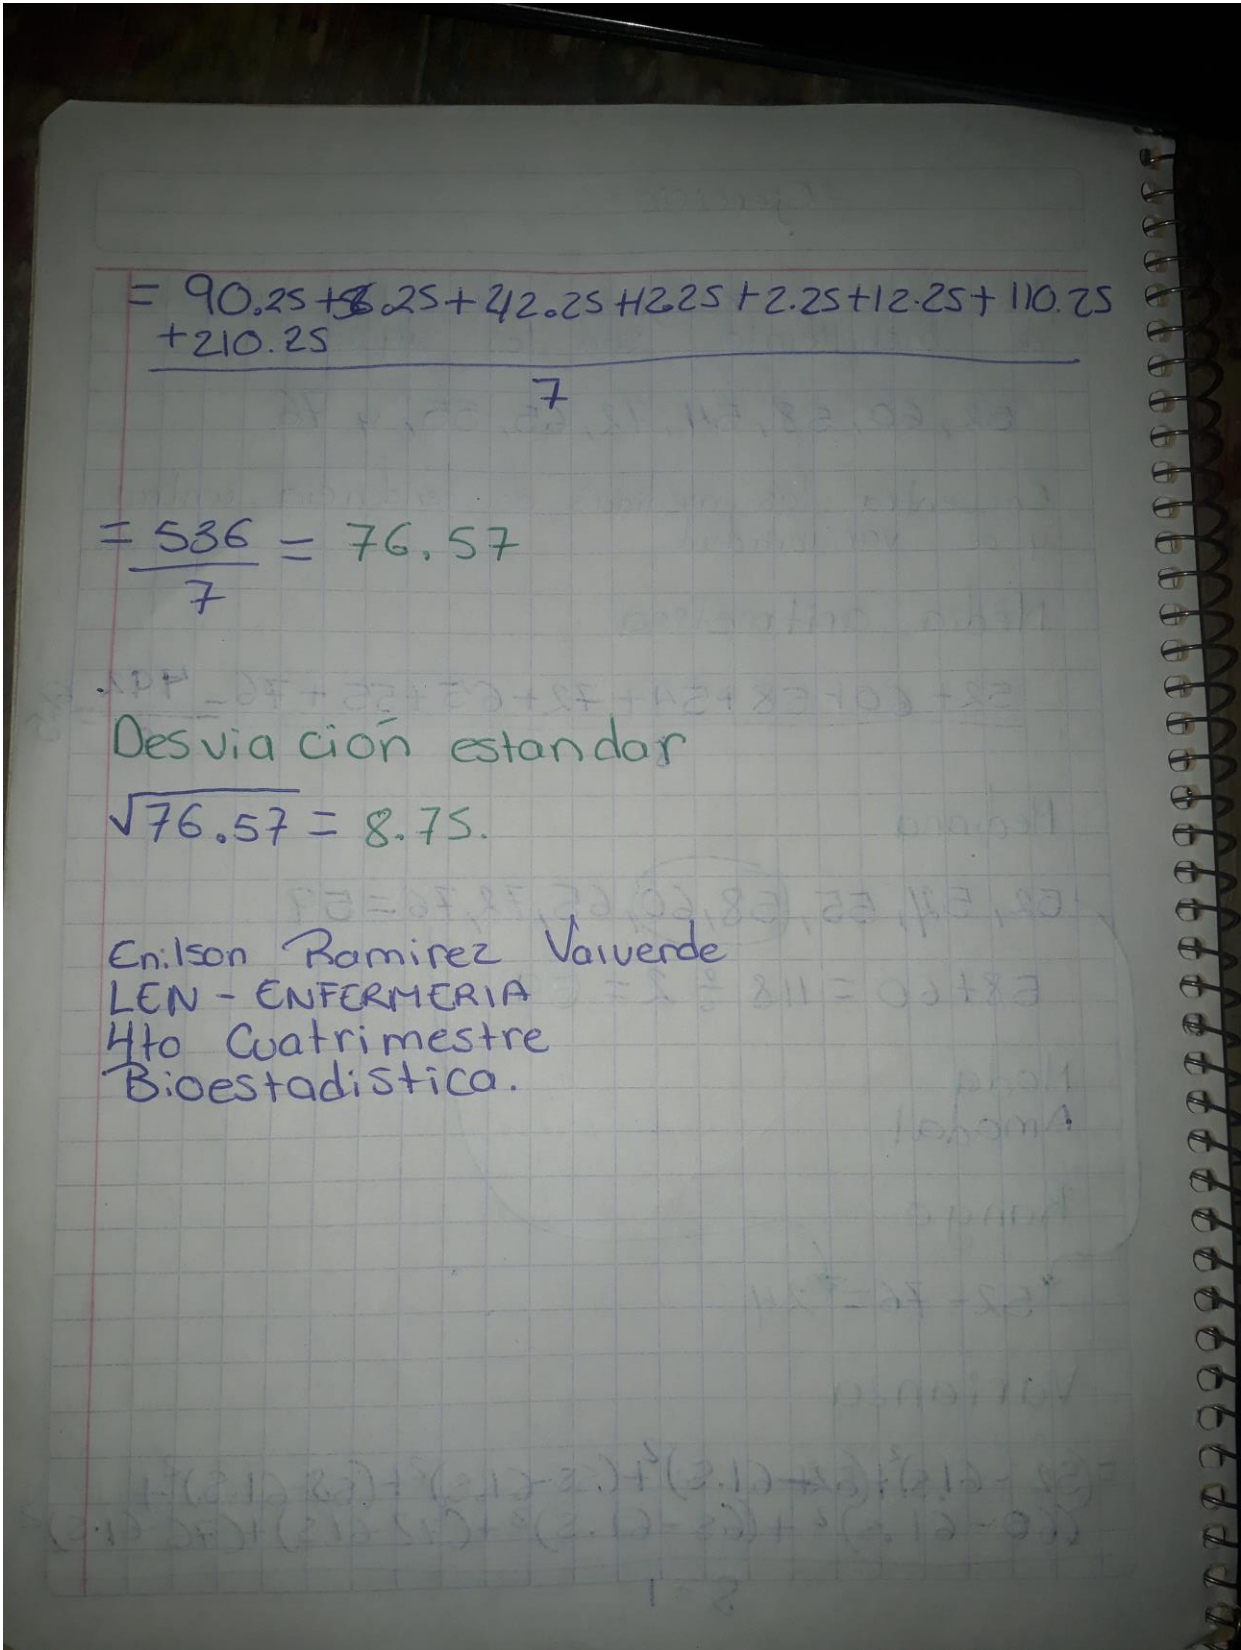 = 90.25+56.25+42.25+12.25+2.25+12.25+110.25
+210.25
7
= 536 = 76.57
7
Desviación estandar
√76.57 = 8.75.
Enilson Ramirez Valverde
LEN - ENFERMERIA
4to Cuatrimestre
Bioestadistica.